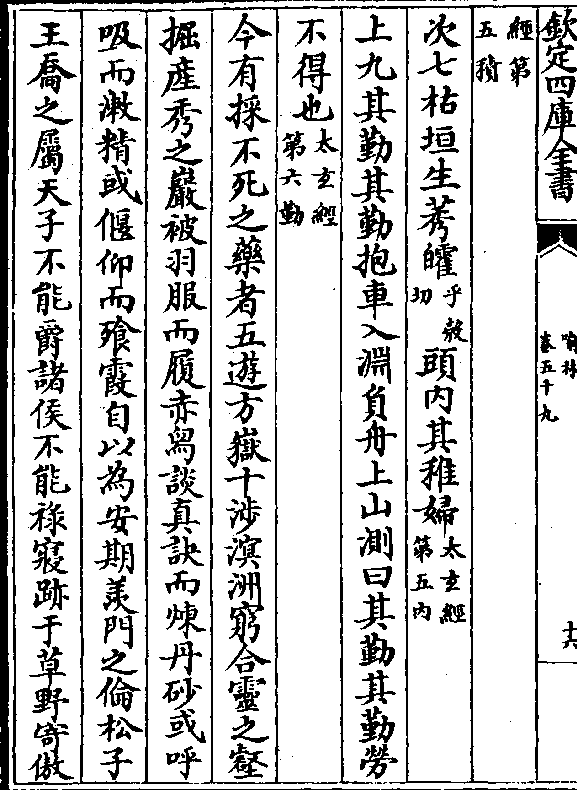 欽定四庫全書
喻林
卷五十九
十六
經第
五積
次七枯垣生莠皬乎殽切頭内其稚婦太玄經第五内
上九其勤其勤抱車入淵負舟上山測曰其勤其勤勞
不得也太玄經第六勤
今有採不死之藥者五遊方嶽十涉溟洲窮合靈之壑
掘產秀之巖被羽服而履赤舄談真訣而煉丹砂或呼
吸而漱精或偃仰而飱霞自以為安期羨門之倫松子
王喬之屬天子不能爵諸侯不能祿寢跡于草野寄傲